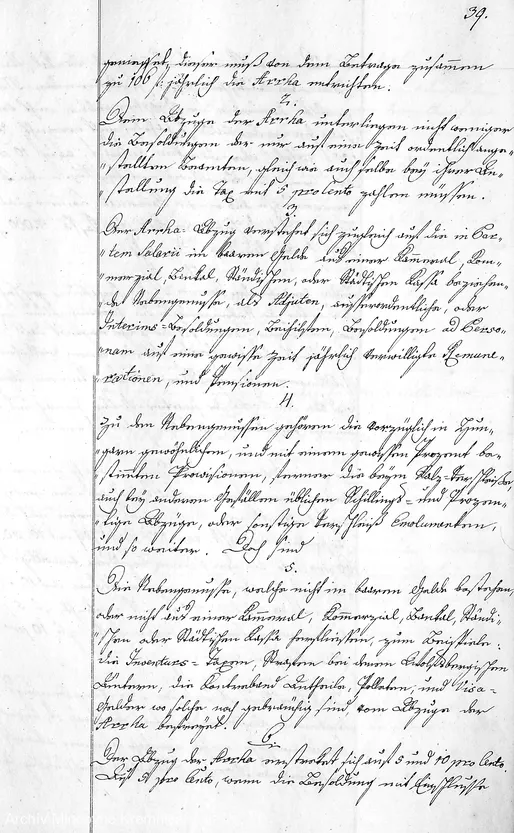 39.
geniesset, dieser muß von dem Betrage zusammen
zu 100 f: jährlich die Arrha entrichten.
2.
Dem Abzuge der Arrha unterliegen nicht weniger
die Besoldungen der nur auf eine Zeit ordentlich ange-
stellten Beamten, gleichwie auch selbe bey ihrer An-
stellung die Tax mit 5 pro Cento zahlen müssen.
3
Der Arrha-Abzug verstehet sich zugleich auf die in Par-
tem Salarii im baaren Gelde aus einer Kameral, Kom-
merzial, Bankal, Ständischen, oder Städtischen Kassa beziehen-
de Nebengenusse, als Adjuten, ausserordentliche, oder
Interims-Besoldungen, Beihilfen, Besoldungen ad Perso-
nam auf eine gewisse Zeit jährlich verwilligte Remune-
rationen, und Pensionen.
4.
Zu den Nebengenussen gehören die vorzüglich in Hun-
garn gewöhnlichen, und mit einem gewissen Prozent be-
stimmten Provisionen, ferner die beym Salz-Verschleiße,
auch bey anderen Gefällen üblichen Schillings- und Prozen-
tige Abzüge, oder sonstige Verschleiß Emolumenten,
und so weiter. Doch sind
5.
Die Nebengenusse, welche nicht im baaren Gelde bestehen,
oder nicht aus einer Kammeral, Kommerzial, Bankal, Ständi-
schen oder Städtischen Kassa herfliessen, zum Beispiele:
die Inventurs-Taxen, bei denen
Ämtern, die Kontreband Antheile, Polleten, und Visa-
Gelder wo solche noch gebräuchig sind, vom Abzuge der
Arrha befreyet.
6.
Der Abzug der Arrha erstreket sich auf 5 und 10 pro Cento.
Auf 5 pro Cento, wenn die Besoldung mit Einschlusse